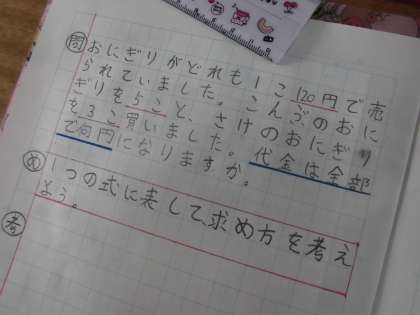 問 おにぎりがどれも1こ120円で売
られていました。こんぶのおに
ぎりを5こと、さけのおにぎり
を3こ買いました。代金は全部
で何円になりますか。
め 1つの式に表して、求め方を考え
よう。
考